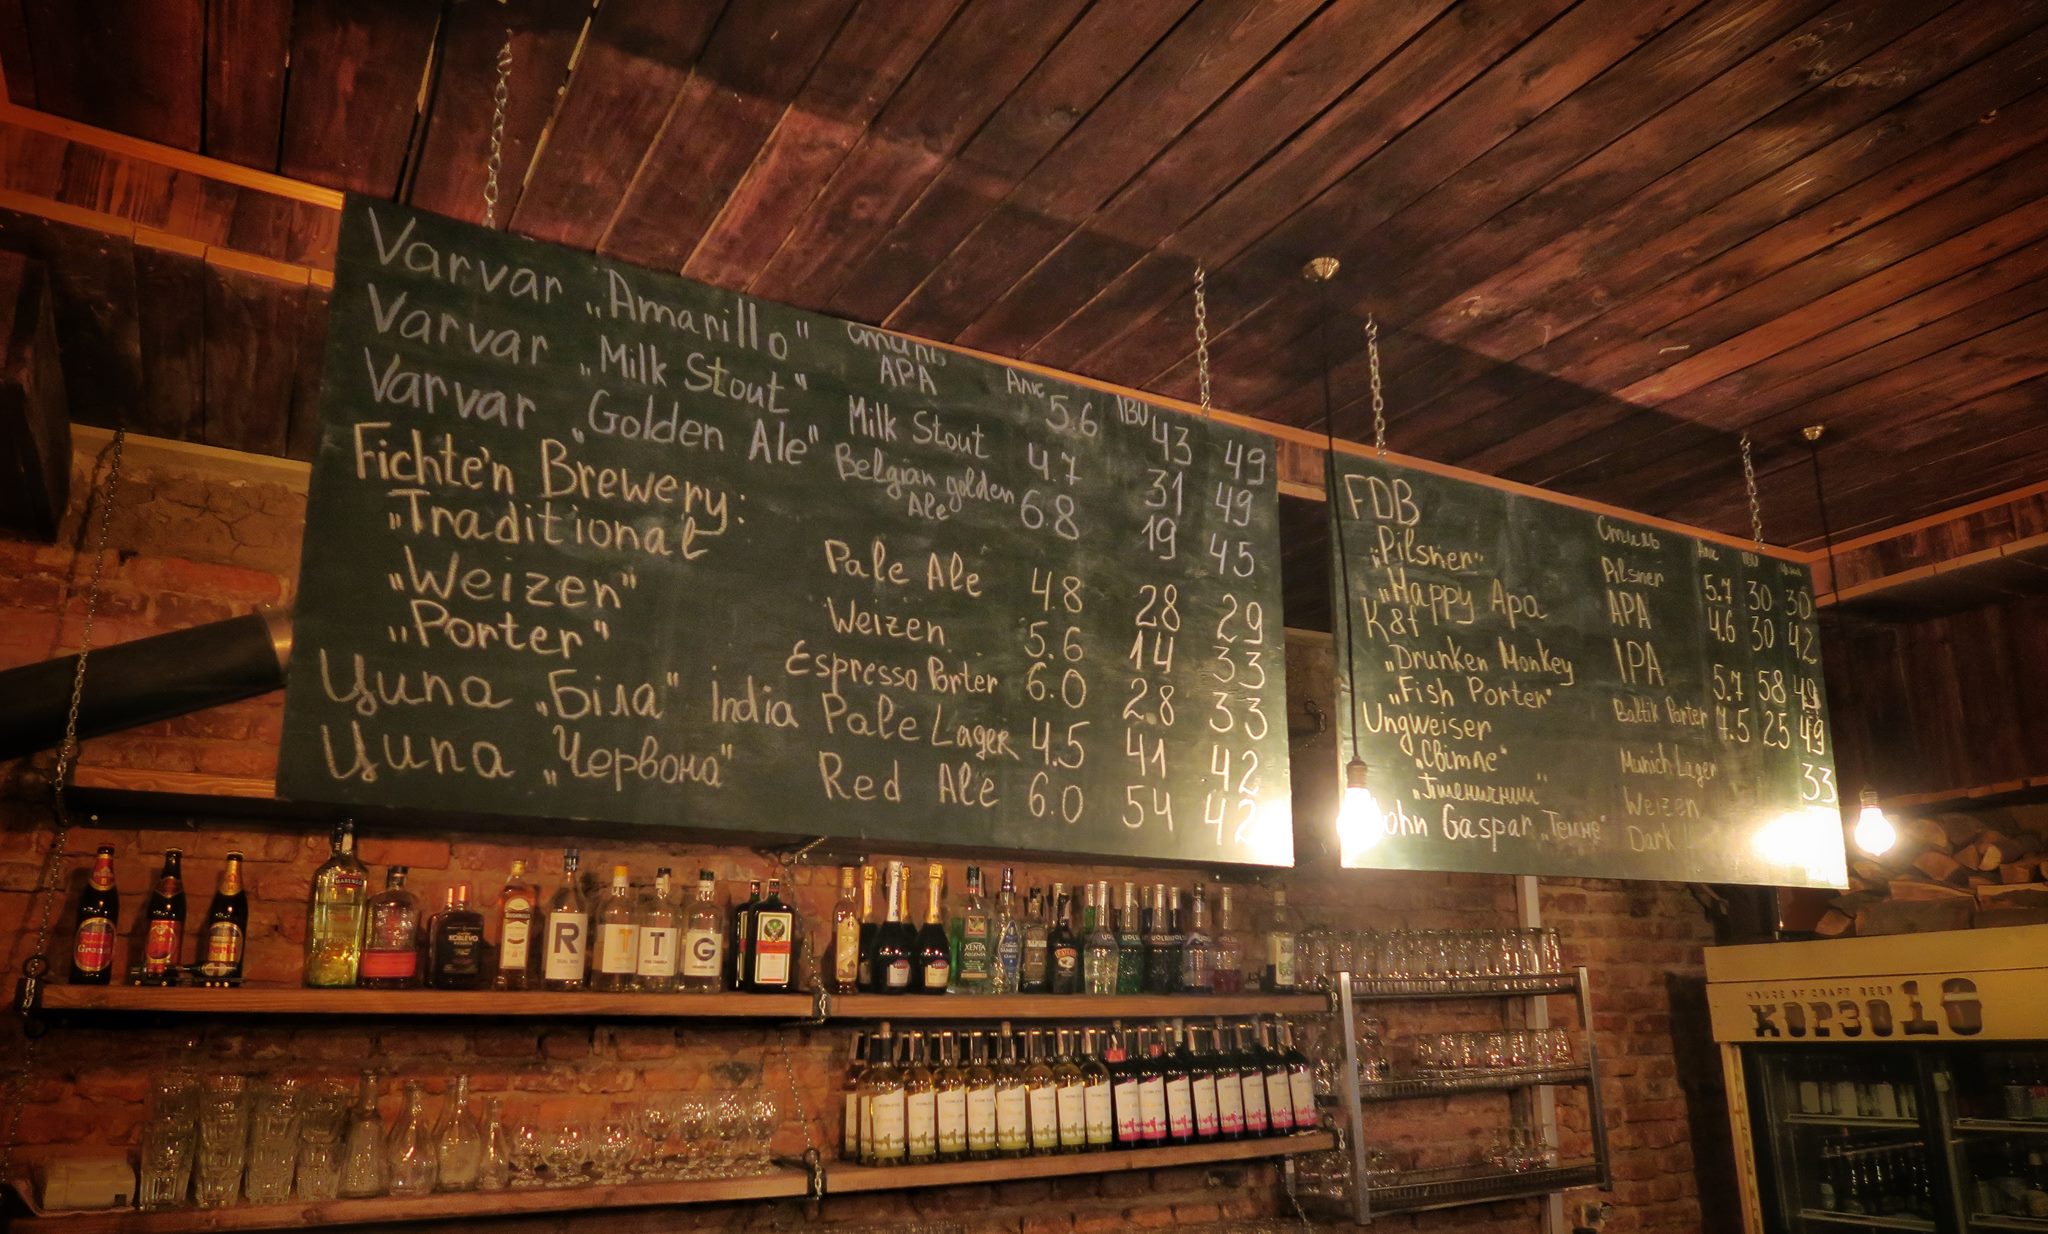 Стиль Алк IBU
Varvar „Amarillo" APA 5.6 43 49
Varvar „Milk Stout" Milk Stout 4.7 31 49
Varvar „Golden Ale" Belgian golden Ale 6.8 19 45
Fichte'n Brewery:
„Traditional Pale Ale 4.8 28 29
„Weizen" Weizen 5.6 14 33
„Porter" Espresso Porter 6.0 28 33
Ципа „Біла" India Pale Lager 4.5 41 42
Ципа „Червона" Red Ale 6.0 54 42
FDB Стиль Алк IBU
„Pilsner" Pilsner 5.7 30 30
„Happy Apa APA 4.6 30 42
K&f
„Drunken Monkey IPA 5.7 58 49
„Fish Porter" Baltik Porter 7.5 25 49
Ungweiser
„Світле" Munich Lager 33
„Пшеничний" Weizen
John Gaspar „Темне" Dark
R T T G
HOUSE OF CRAFT BEER
КОРЗО16